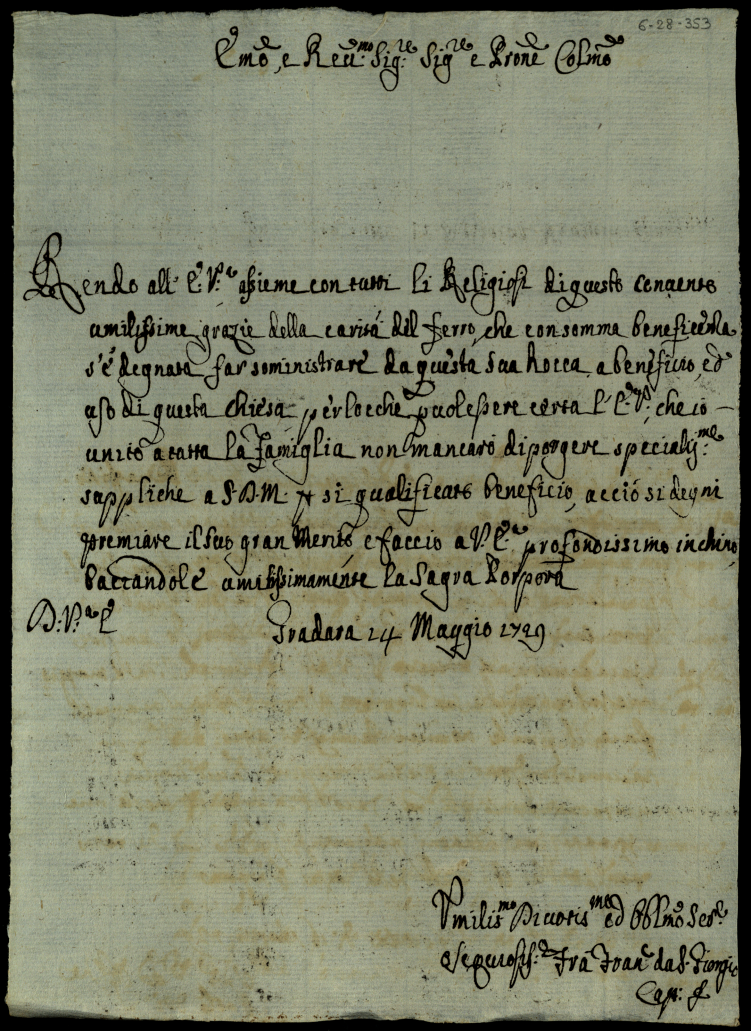 6-28-353
Emo, e Reu.mo Sig.re Sig.re e Prone Colmo
Rendo all' E: V.ra assieme con tutti li Religiosi di questo Conuento
umilissime grazie della carità del ferro, che con somma beneficenza
s'è degnata far soministrare da questa Sua Rocca, a beneficio, ed
uso di questa Chiesa, per locche puol essere certa l' E. V.ra, che io
unito a tutta la Famiglia non mancarò di porgere specialis.me
suppliche a S. D. M. per si qualificato beneficio, acciò si degni
premiare il suo gran Merito, e faccio a V.ra E. profondissimo inchino,
baccandole umilissimamente la Sagra Porpora
D: V.ra E
Gradara 24 Maggio 1729
Vmilis.mo Diuotis.mo ed Obblmo Ser.e
Osequiosiss. Frà Joan da S. Giorgio
Cap: